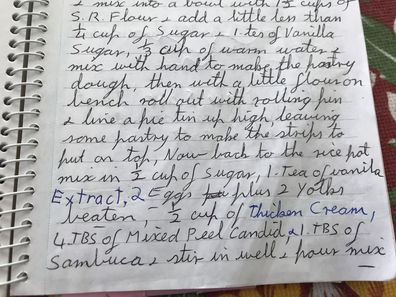 & mix into a bowl with 1½ cups of
S.R. Flour & add a little less than
¼ cup of Sugar & 1.tes of Vanilla
Sugar, ⅓ cup of warm water &
mix with hand to make the pastry
dough, then with a little flour on
bench roll out with rolling pin
& line a pie tin up high leaving
some pastry to make the strips to
put on top, Now back to the rice pot
mix in ½ cup of Sugar, 1.Tea of vanilla
Extract, 2 Eggs plus 2 Yolks
beaten, ½ cup of Thicken Cream,
4.TBS of Mixed Peel Candid, & 1.TBS of
Sambuca & stir in well & pour mix